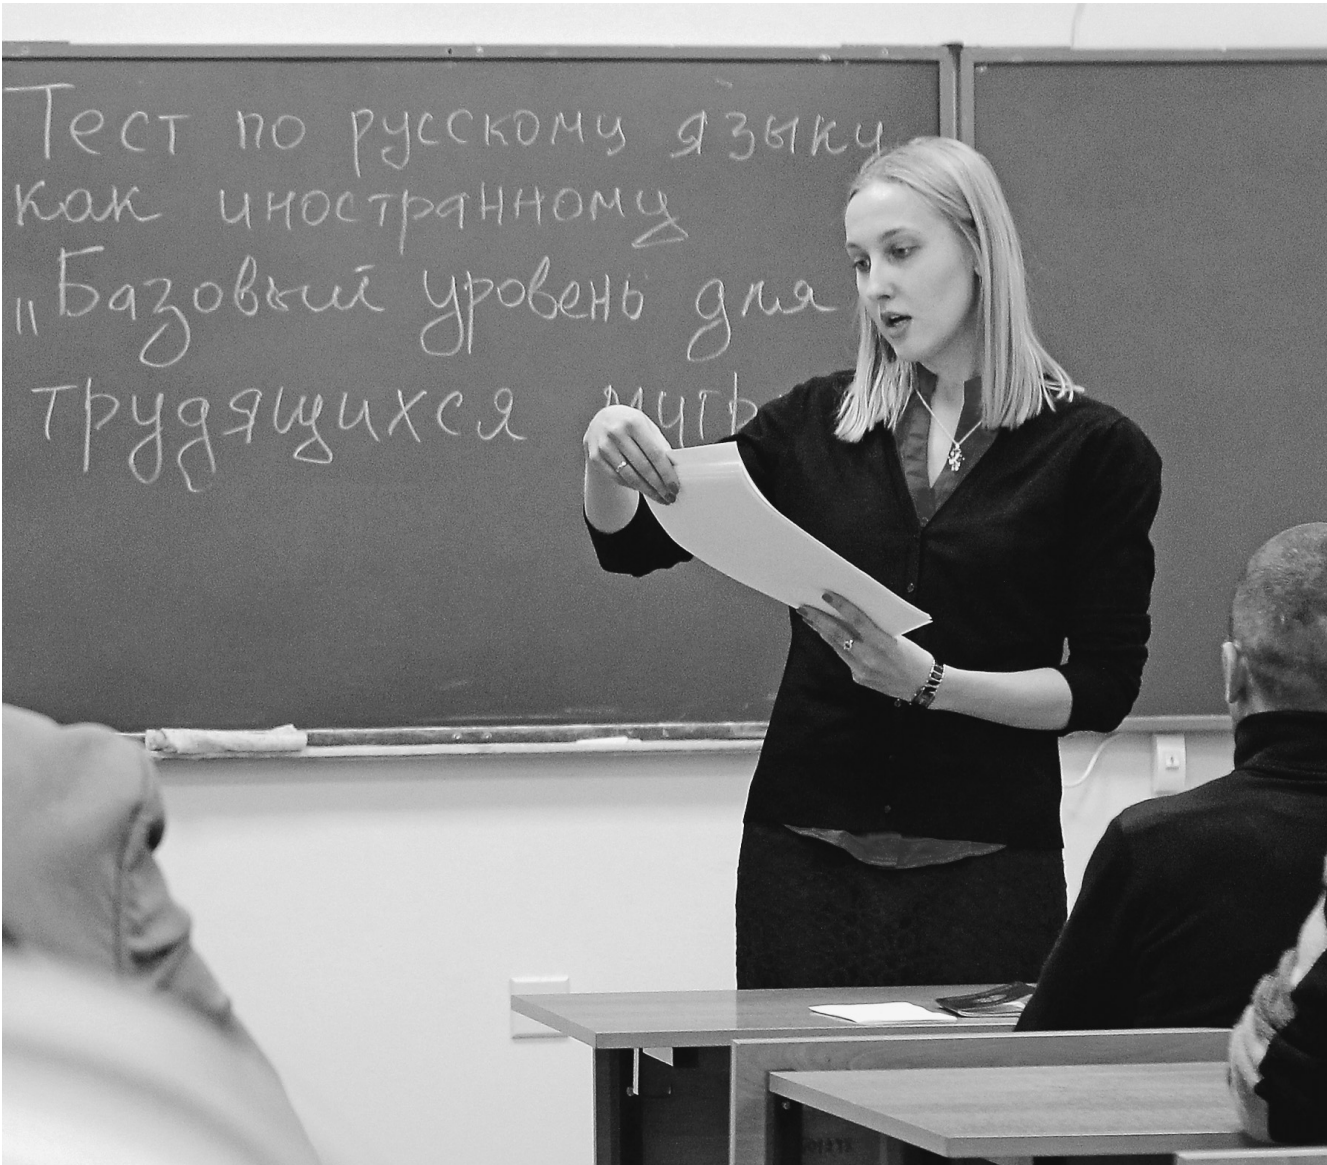 Тест по русскому языку
как иностранному
„Базовый уровень для
трудящихся мигр